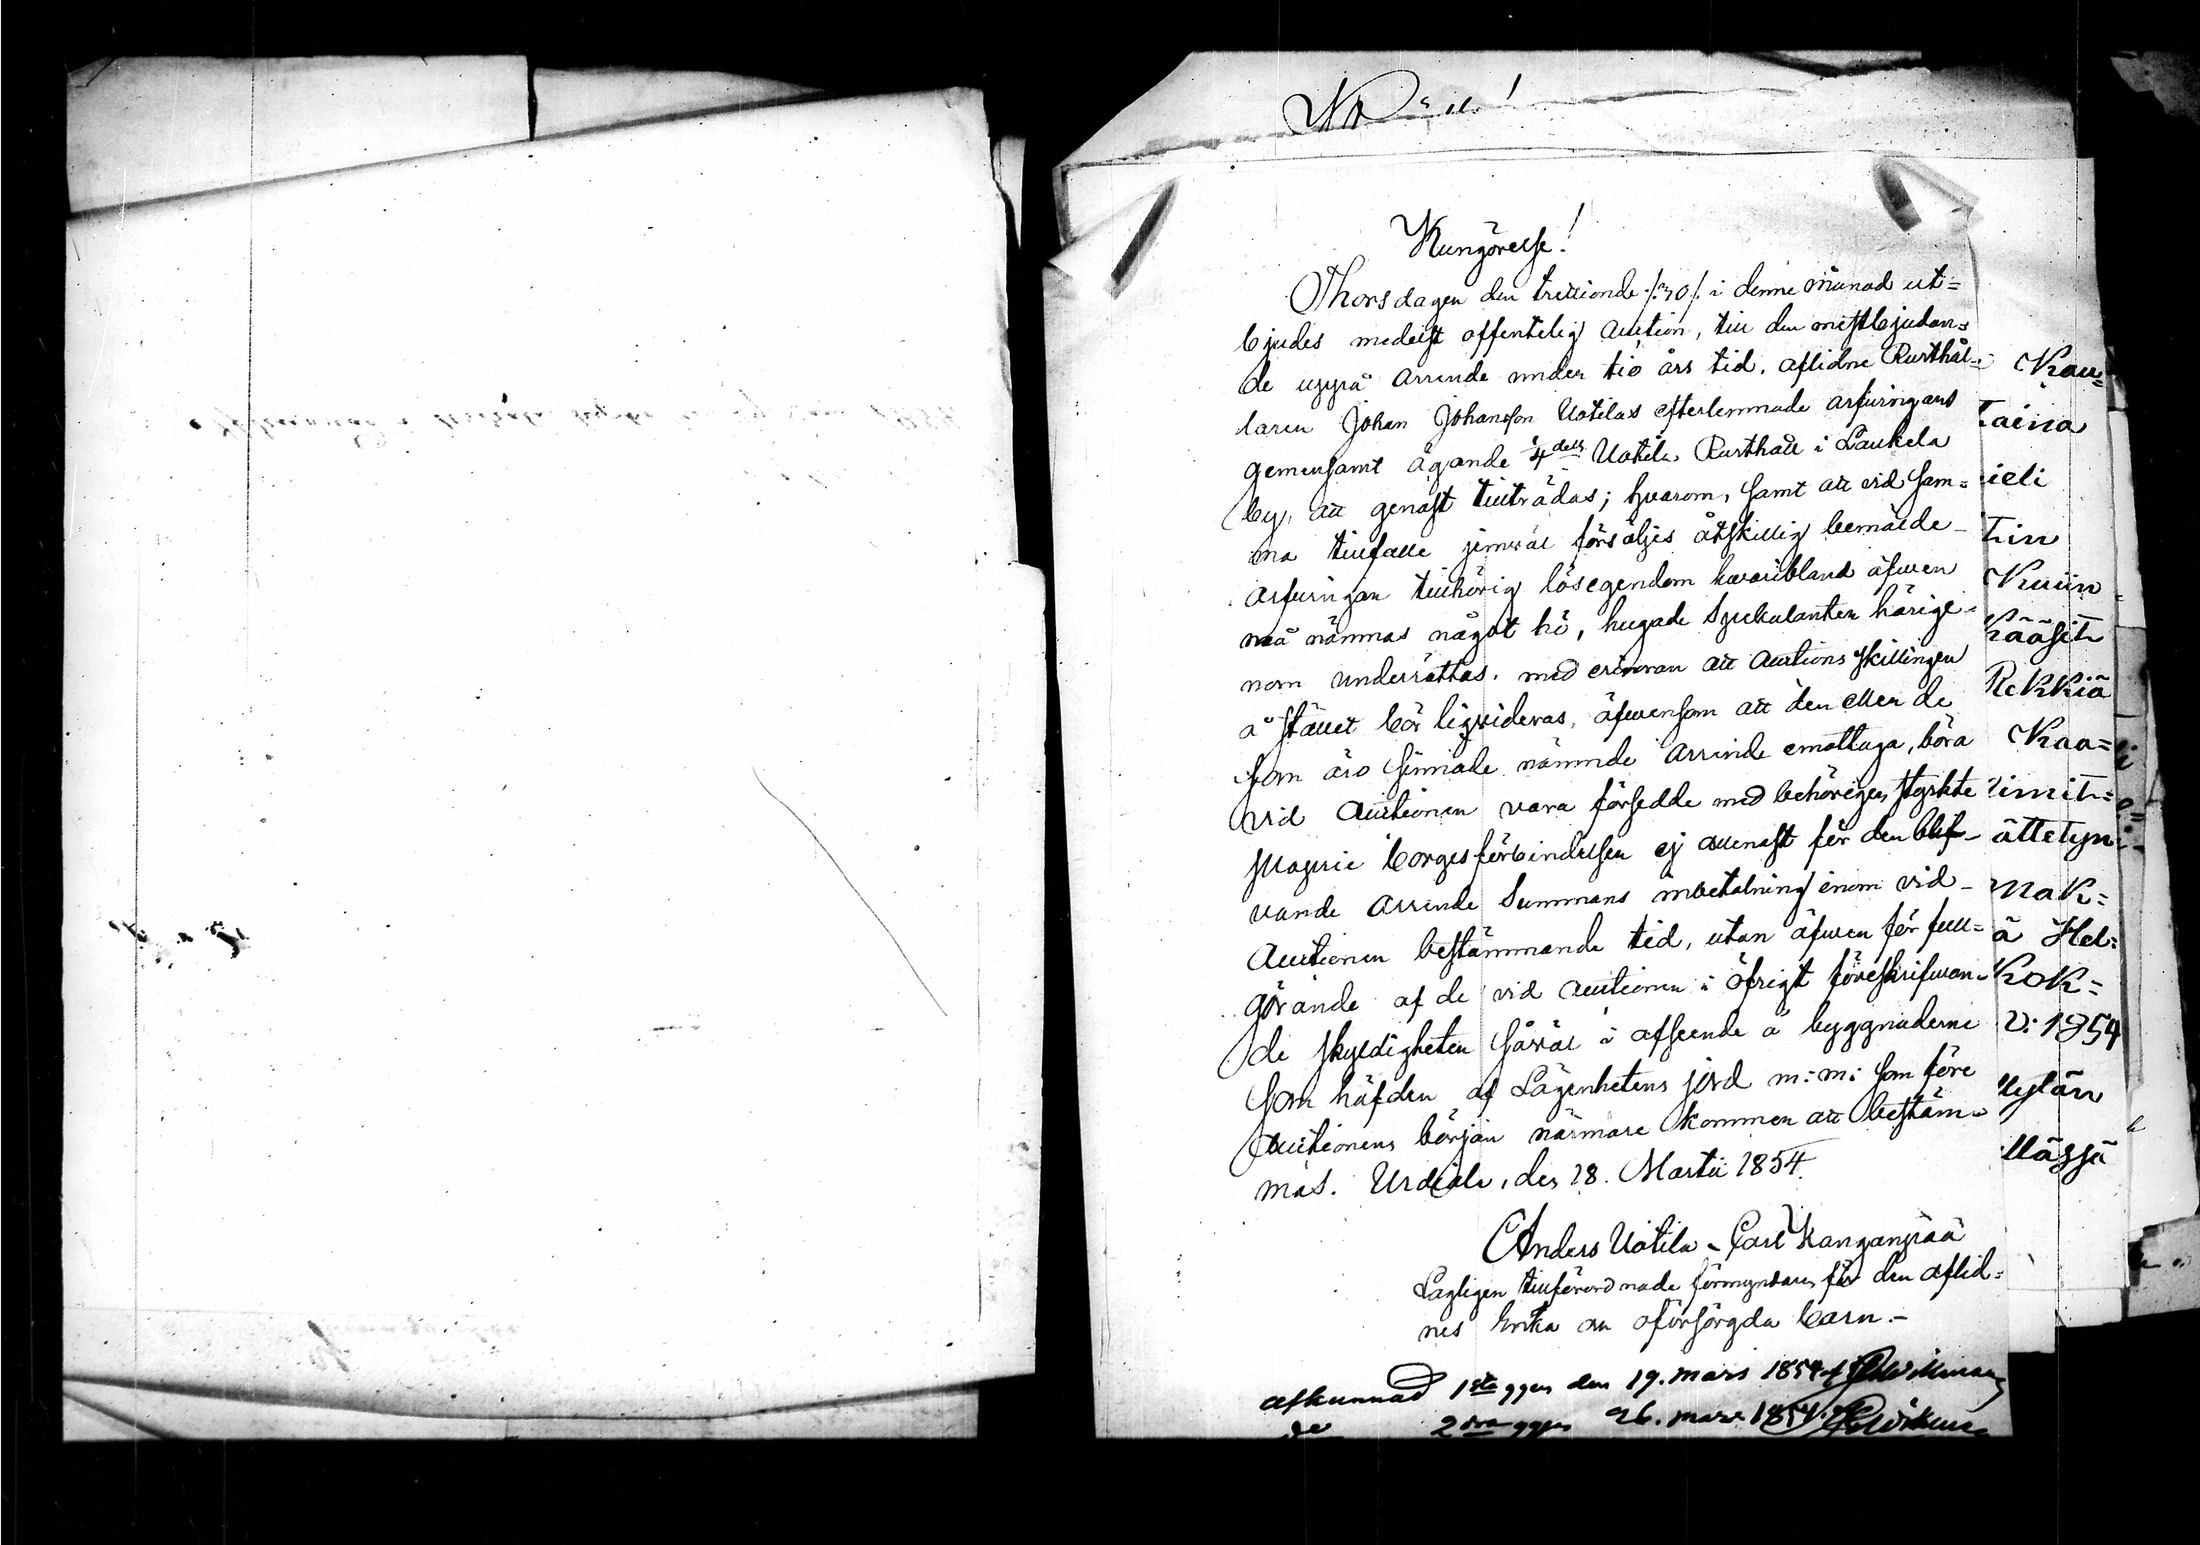 Kungörelse!
Thorsdagen den trettionde /:30/: i denne månad ut=
bjudes medelst offentelig Auction, till den mestbjudan=
de uppå Arrende under tio års tid, aflidne Rusthål=
laren Johan Johansson Uotilas efterlemnade arfvingars
gemensamt ägande 1/4 dels Uotila Rusthåll i Laukela
by, att genast tillträdas; hvarom, samt att vid sam=
ma tillfälle jemväl försäljes åtskillig bemälde
Arfvingar tillhörig lösegendom hvaribland äfven
må nämnas något hö, hugade Spekulanter härige=
nom underrättas, med erinran att Auctions skillingen
å stället bör liqvideras, äfvensom att den eller de
som äro sinnade nämnde Arrende emottaga, böra
vid Auctionen vara försedde med behörigen styrkte
skogrie borgesförbindelser ej allenast för den blif-
vande Arrende Summans inbetalning inom vid
Auctionen bestämmande tid, utan äfven för full=
görande af de vid Auctionen i öfrigt föreskrifvan=
de skyldigheter såväl i afseende å byggnaderne
som häfden af Lägenhetens jord m:m: som före
Auctionens början närmare kommer att bestäm=
mas. Urdiala, den 18. Martii 1854.
Anders Uotila - Carl Kanganpää
Lagligen tillförordnade förmyndare för den aflid=
nes Enka och oförsörgda barn.-
afkunnad 1sta ggen den 19. mars 1854
de 2dra ggen 26. mars 1854
Kau=
taina
ieli
tin
Kuiin
Kääsit
Rekkiä
Kaa=
imit=
ättetyn
mak=
ä Hel=
kok=
v: 1854
llylän
llässä